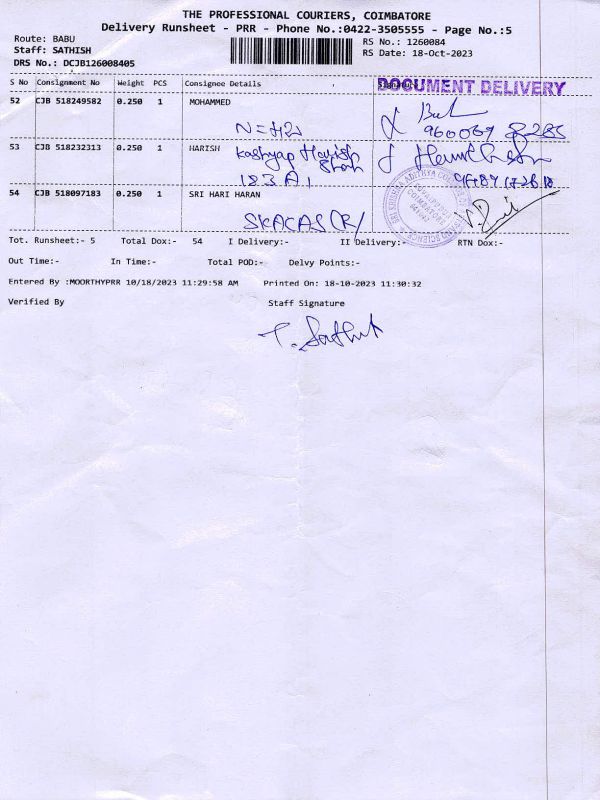 THE PROFESSIONAL COURIERS, COIMBATORE
Delivery Runsheet - PRR - Phone No.:0422-3505555 - Page No.:5
Route: BABU
Staff: SATHISH
DRS No.: DCJB126008405
RS No.: 1260084
RS Date: 18-Oct-2023
S No Consignment No Weight PCS Consignee Details
DOCUMENT DELIVERY
52 CJB 518249582 0.250 1 MOHAMMED
53 CJB 518232313 0.250 1 HARISH Kashyap Harish
Shah
183 A,
54 CJB 518097183 0.250 1 SRI HARI HARAN
SKACAS (R)
Tot. Runsheet:- 5 Total Dox:- 54 I Delivery:- II Delivery:- RTN Dox:-
Out Time:- In Time:- Total POD:- Delvy Points:-
Entered By :MOORTHYPRR 10/18/2023 11:29:58 AM Printed On: 18-10-2023 11:30:32
Verified By Staff Signature